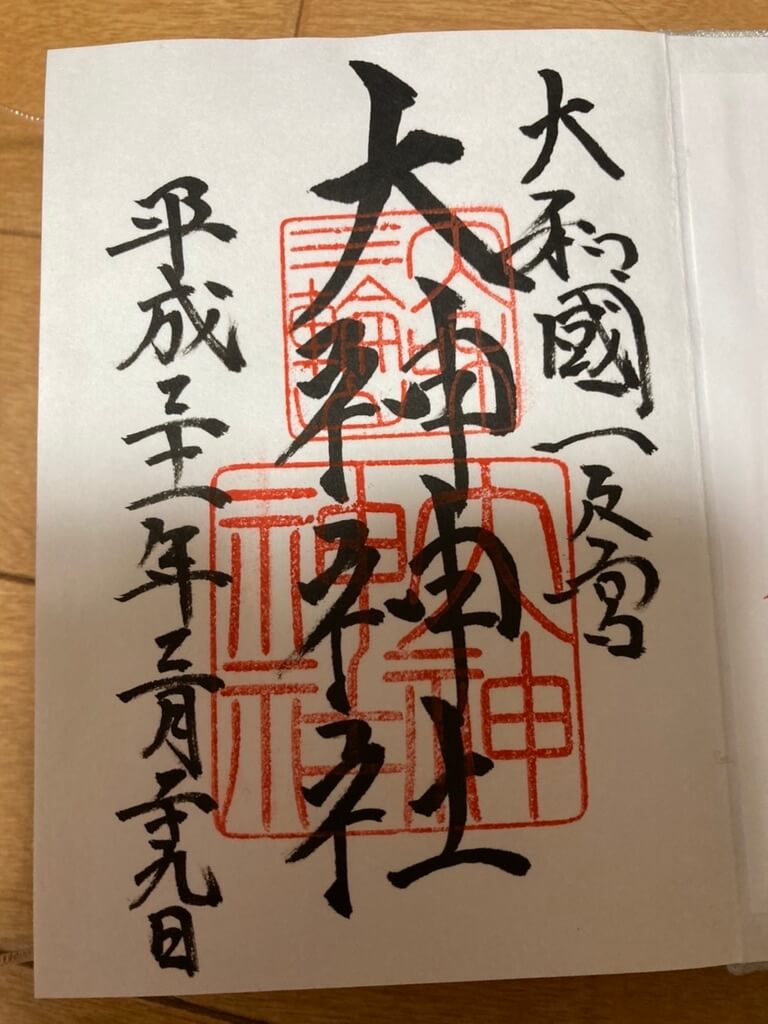 大和國一之宮
大神神社
平成三十一年三月二十九日
大神
神社